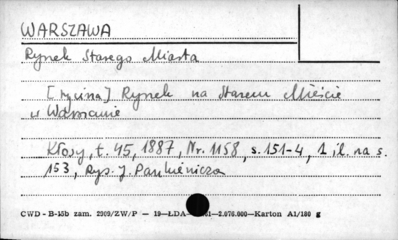 WARSZAWA
Rynek Starego Miasta
[rycina] Rynek na Starem Mieście
w Warszawie
Kłosy, t. 45, 1887, Nr. 1158, s. 151-4, 1 il. na s.
153, Rys. J. Pankiewicza
CWD - B-15b zam. 2909/ZW/P - 19-ŁDA- -2.076.000-Karton A1/180 g